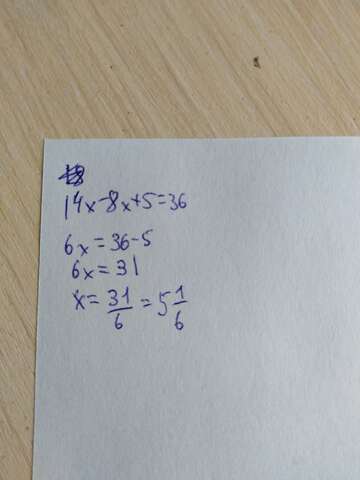 14x-8x+5=36
6x=36-5
6x=31
x=31/6=5 1/6